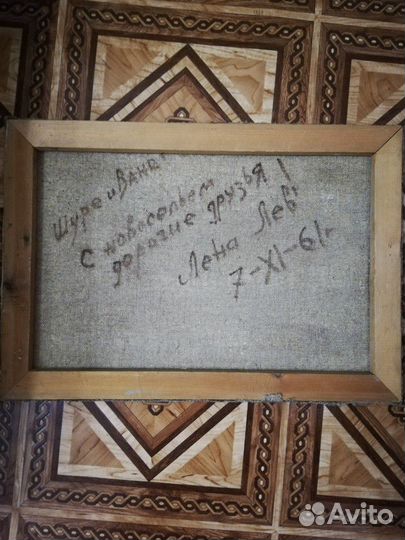 Шуре и Ване
С новосельем
дорогие друзья!
Лена Лев
7-XI-61г.
Avito